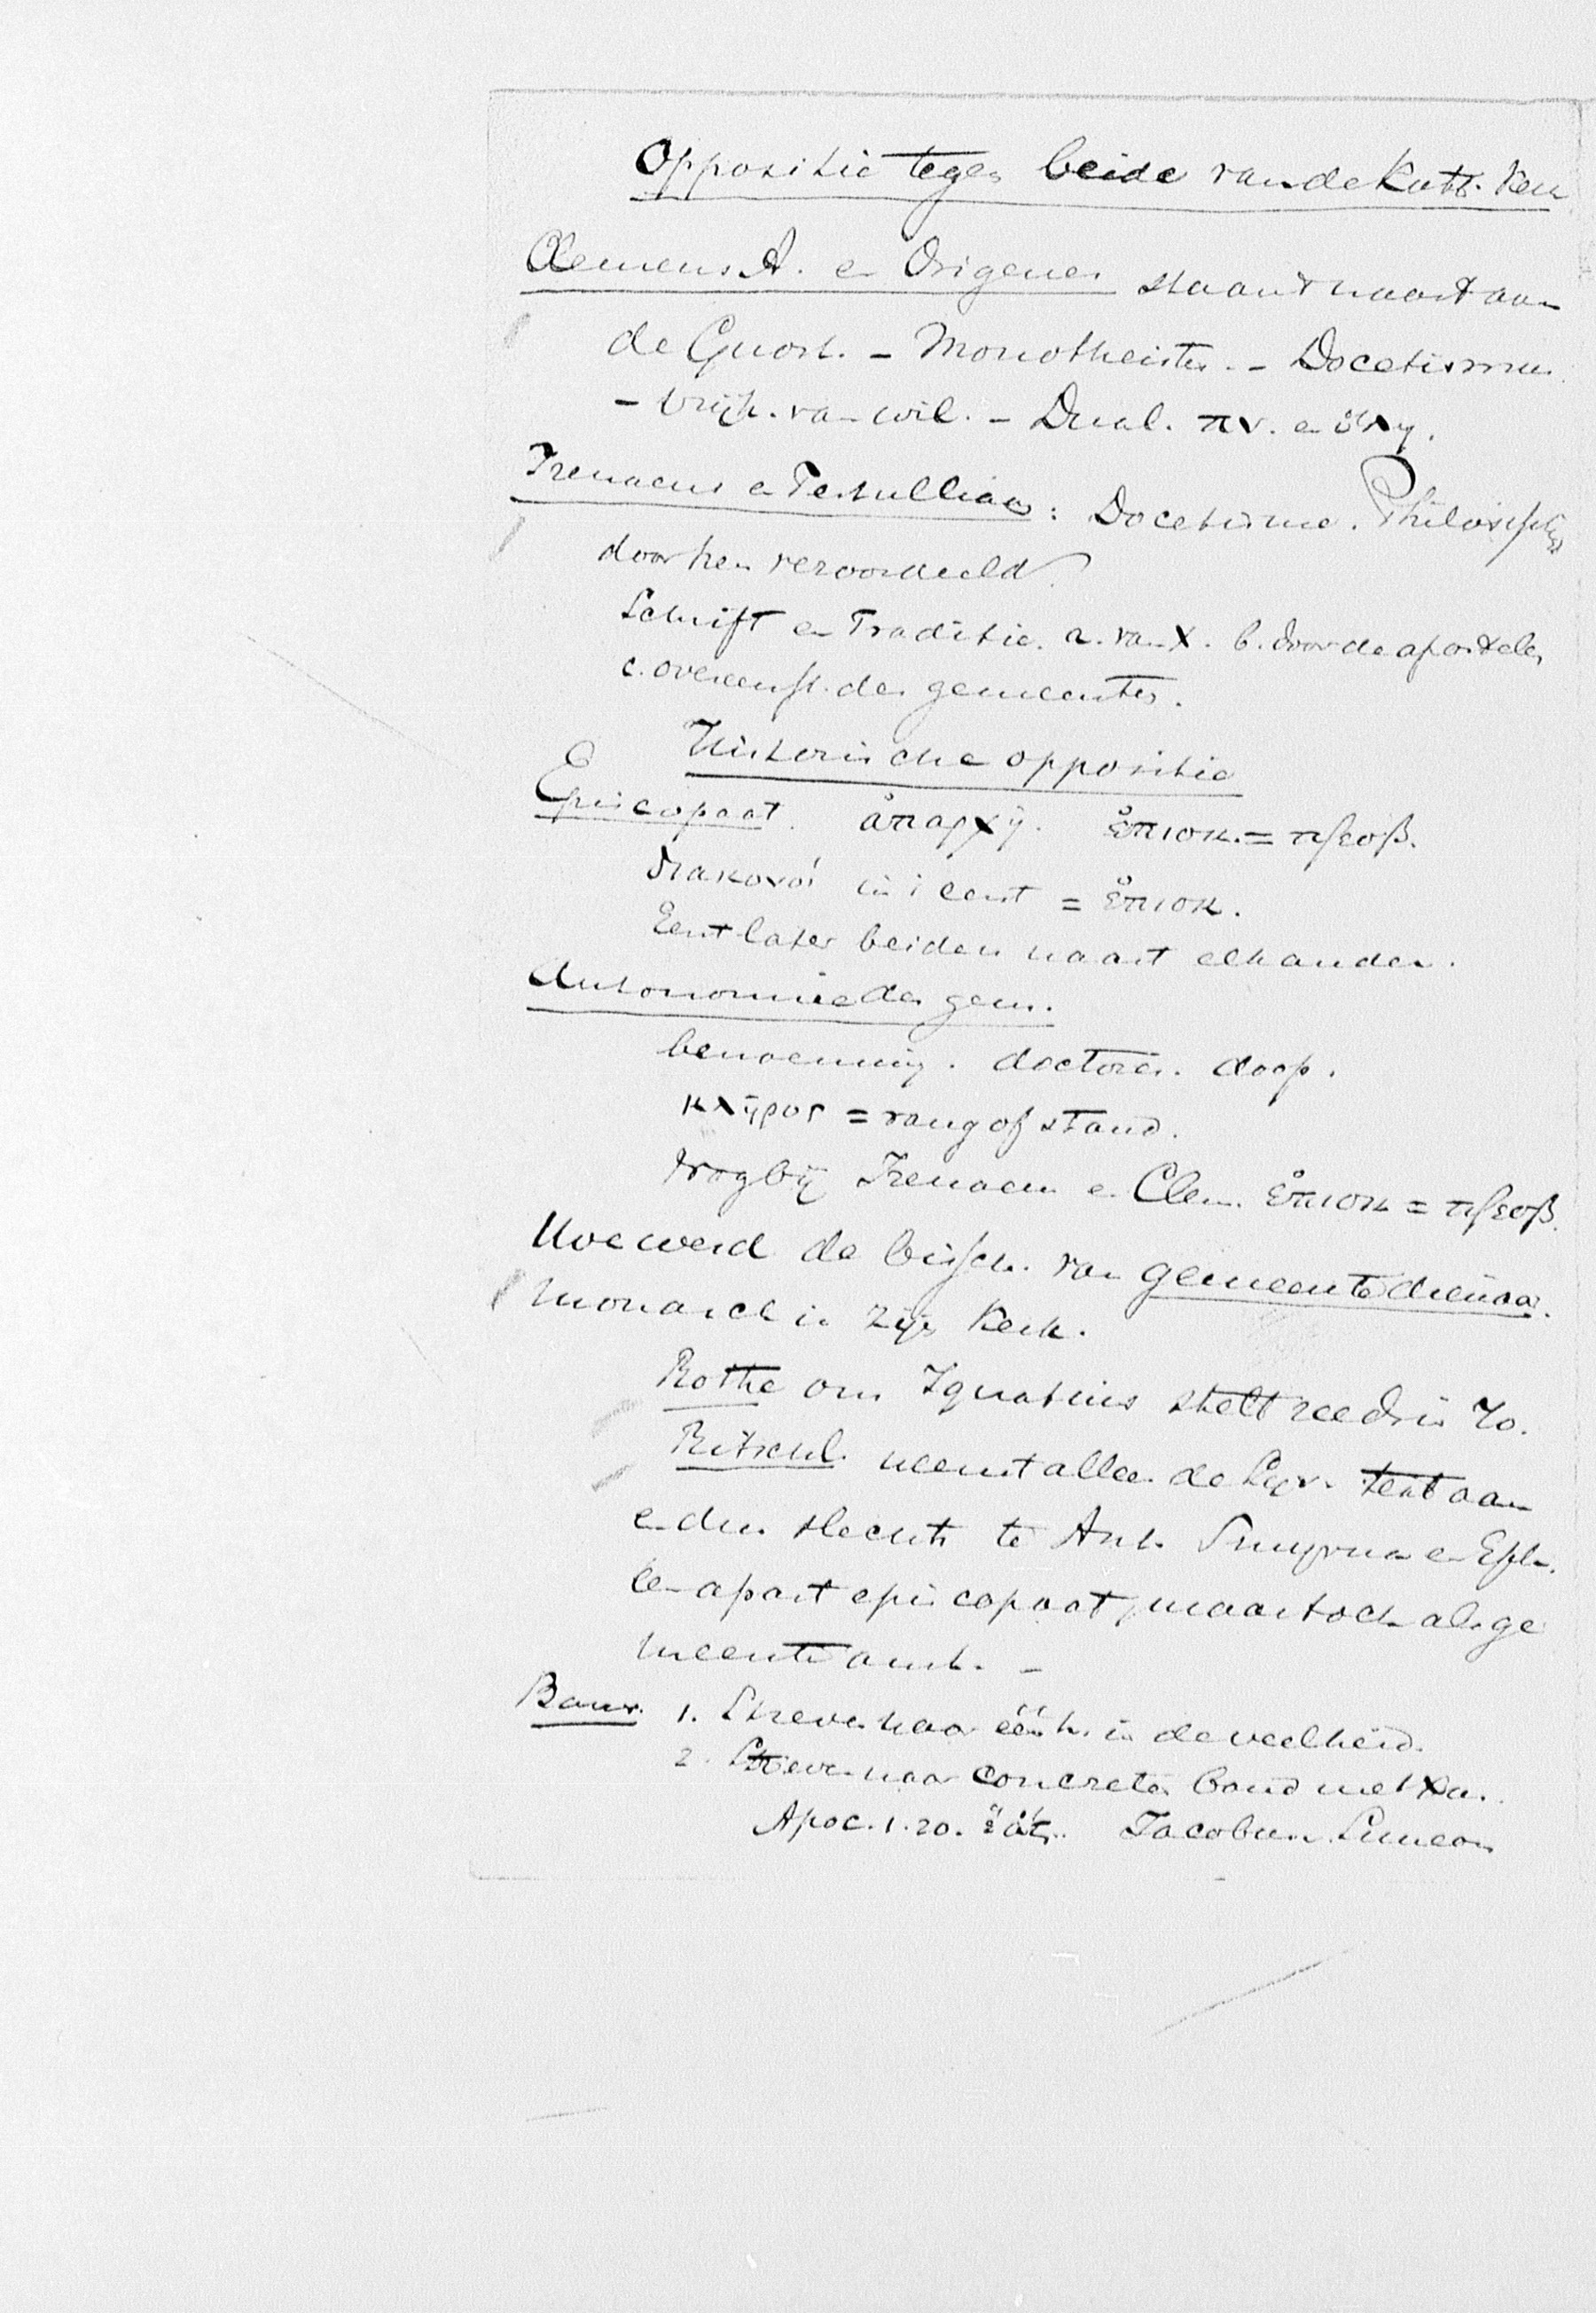 Oppositie tegen beide van de Kath. Kerk
Clemens A. en Origenes staan 't naast aan
de Gnost. - Monotheisten. - Docetisme.
- Vrijh. van wil. - Dual. πν. en ὕλη.
Irenaeus en Tertullianus: Docetisme. Philosophie
door hen veroordeeld.
Schrift en Traditie. a. van X. b. door de apostelen
c. overeenst. der gemeenten.
Historische oppositie
Episcopaat. ἀπαρχή. ἐπισκ. = πρεσβ.
διακονοί in 1 Cent = ἐπισκ.
Eerst later beiden naast elkander.
Autonomie der gem.
benoeming. doctores. doop.
κλῆρος = rang of stand.
Nog bij Irenaeus en Clem. ἐπισκ = πρεσβ.
Hoe werd de bissch. van gemeentedienaar.
Monarch in zijn Kerk.
Rothe om Ignatius stelt reeds in 70.
Ritschl. neemt alleen de Syr. text aan
en dus slechts te Ant. Smyrna en Eph.
een apart episcopaat, maar toch als ge
meenteambt. -
Baur. 1. Streven naar éénh. in de veelheid.
2. Streven naar concreten band met
Apoc. 1.20. Jacobus. Simeon